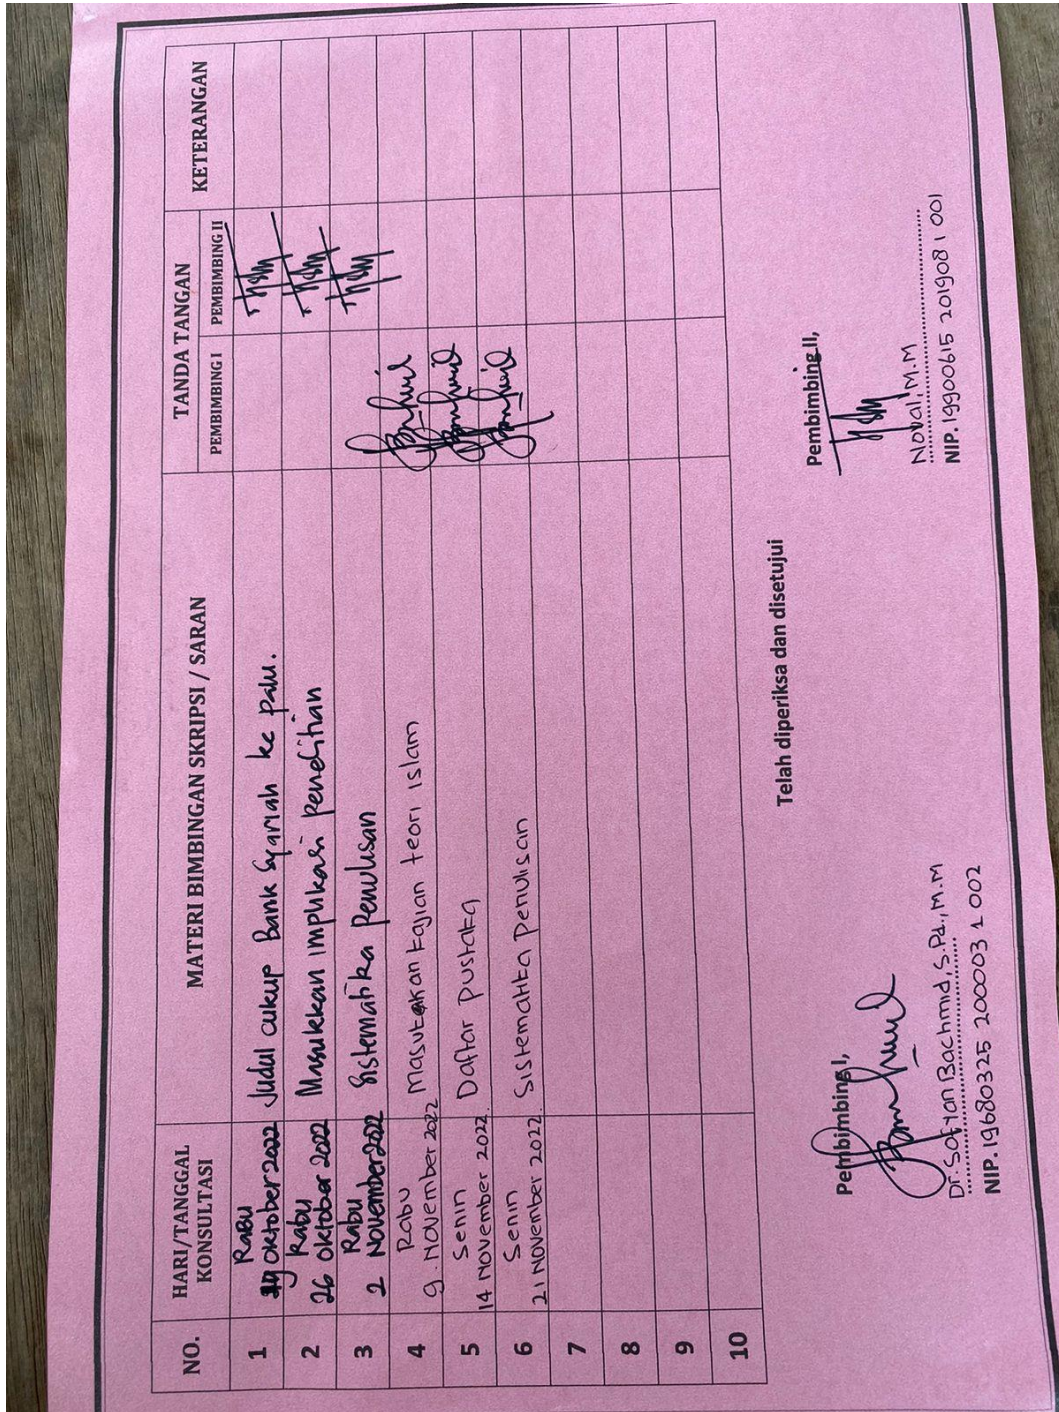 NO.
HARI/TANGGAL
KONSULTASI
MATERI BIMBINGAN SKRIPSI / SARAN
TANDA TANGAN
PEMBIMBING I
PEMBIMBING II
KETERANGAN
1
Rabu
19 Oktober 2022
Judul cukup Bank Syariah ke palu.
2
Rabu
26 Oktober 2022
Masukkan implikasi penelitian
3
Rabu
2 November 2022
Sistematika Penulisan
4
Rabu
9. November 2022
Masukan kajian teori islam
5
Senin
14 November 2022.
Daftar pustaka
6
Senin
21 November 2022.
Sistematika penulisan
7
8
9
10
Telah diperiksa dan disetujui
Pembimbing I,
Dr. Sofyan Bachmid, S.Pd., M.M
NIP. 19680325 200003 1 002
Pembimbing II,
Noval, M.M
NIP. 19900615 201908 1 001